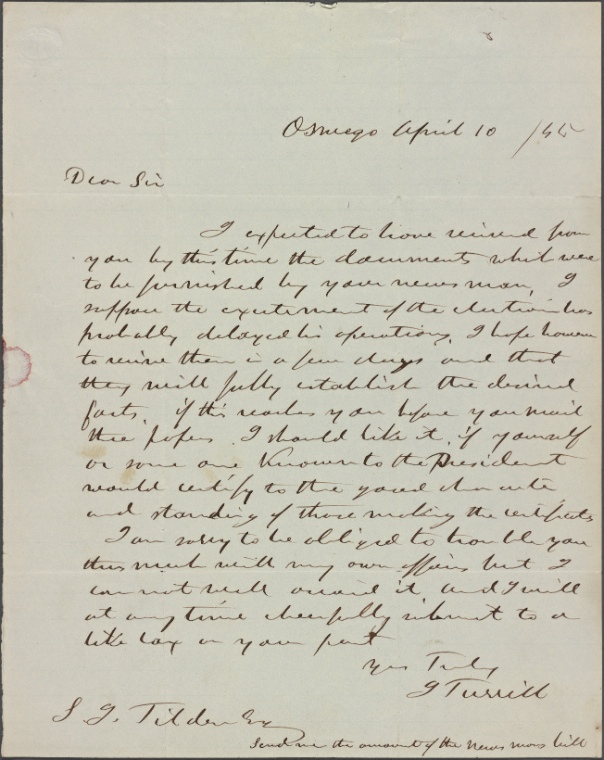 Oswego April 10 /45
Dear Sir
I expected to have received from
you by this time the documents which were
to be furnished by your news man, I
suppose the excitement of the election has
probably delayed his operations. I hope however
to receive them in a few days and that
they will fully establish the desired
facts. if this reaches you before you mail
the papers I should like it if yourself
or some one Known to the President
would certify to the good character
and standing of those making the certificates
I am sorry to be obliged to trouble you
thus much with my own affairs but I
can not well avoid it, and I will
at any time cheerfully submit to a
like tax on your part
Yrs Truly
J Turrill
S J. Tilden Esq
Send me the amount of the news mans bill